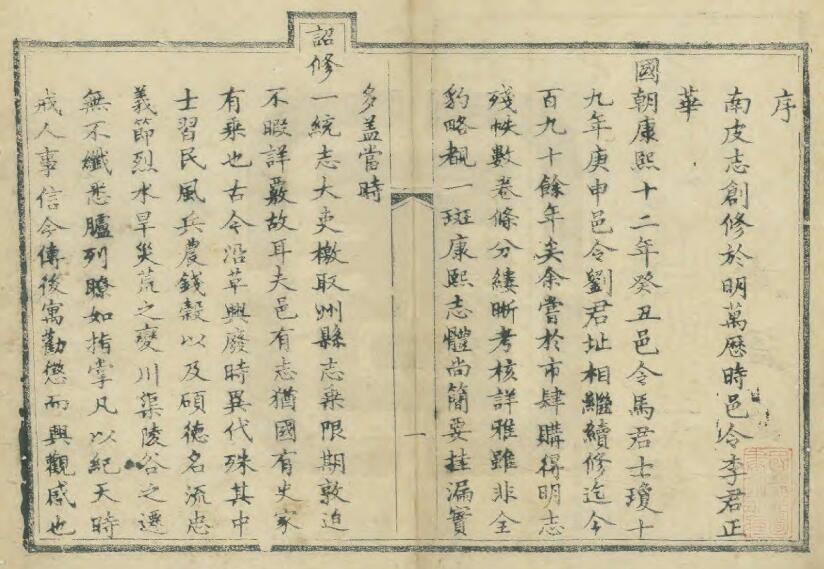 序
南皮志創修於明萬曆時邑令李君正
華
國朝康熙十二年癸丑邑令馬君士瓊十
九年庚申邑令劉君址相繼續修迄今
百九十餘年矣余嘗於市肆購得明志
殘帙數卷條分縷晰考核詳雅雖非全
豹略覩一斑康熙志體尚簡要挂漏實
多盖當時
詔修一統志大吏檄取州縣志乗限期敦迫
不暇詳覈故耳夫邑有志猶國有史家
有乗也古今沿革興廢時異代殊其中
士習民風兵農錢穀以及碩德名流忠
義節烈水旱災荒之變川渠陵谷之遷
無不纖悉臚列瞭如指掌凡以紀天時
戒人事信今傳後寓勸懲而興觀感也
一